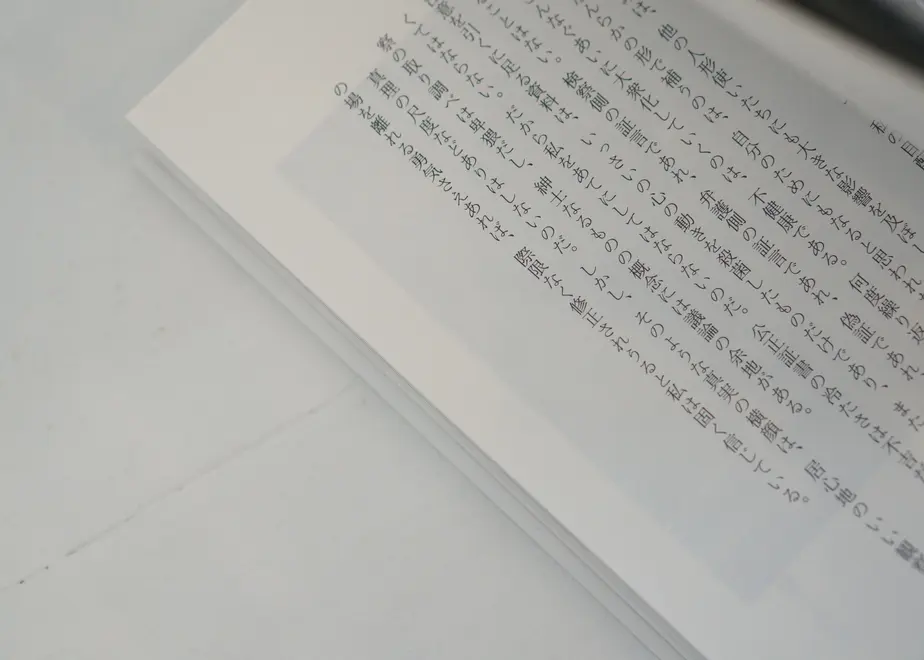 私の目
は、他の人形使いたちにも大きな影響を及ぼし
んらかの形で補うのは、自分のためにもなると思われ
んなぐあいに大衆化していくのは、不健康である。何度繰り返
ことはない。検察側の証言であれ、弁護側の証言であれ、偽証であれ、また
意を引くに足る資料は、いっさいの心の動きを殺菌したものだけであり、
てはならない。だから私をあてにしてはならないのだ。公正証書の冷たさは不吉な
く取り調べは卑猥だし、紳士なるものの概念には議論の余地がある。
察の真理の尺度などありはしないのだ。しかし、そのような真実の横顔は、居心地のいい観察
の場を離れる勇気さえあれば、際限なく修正されうると私は固く信じている。